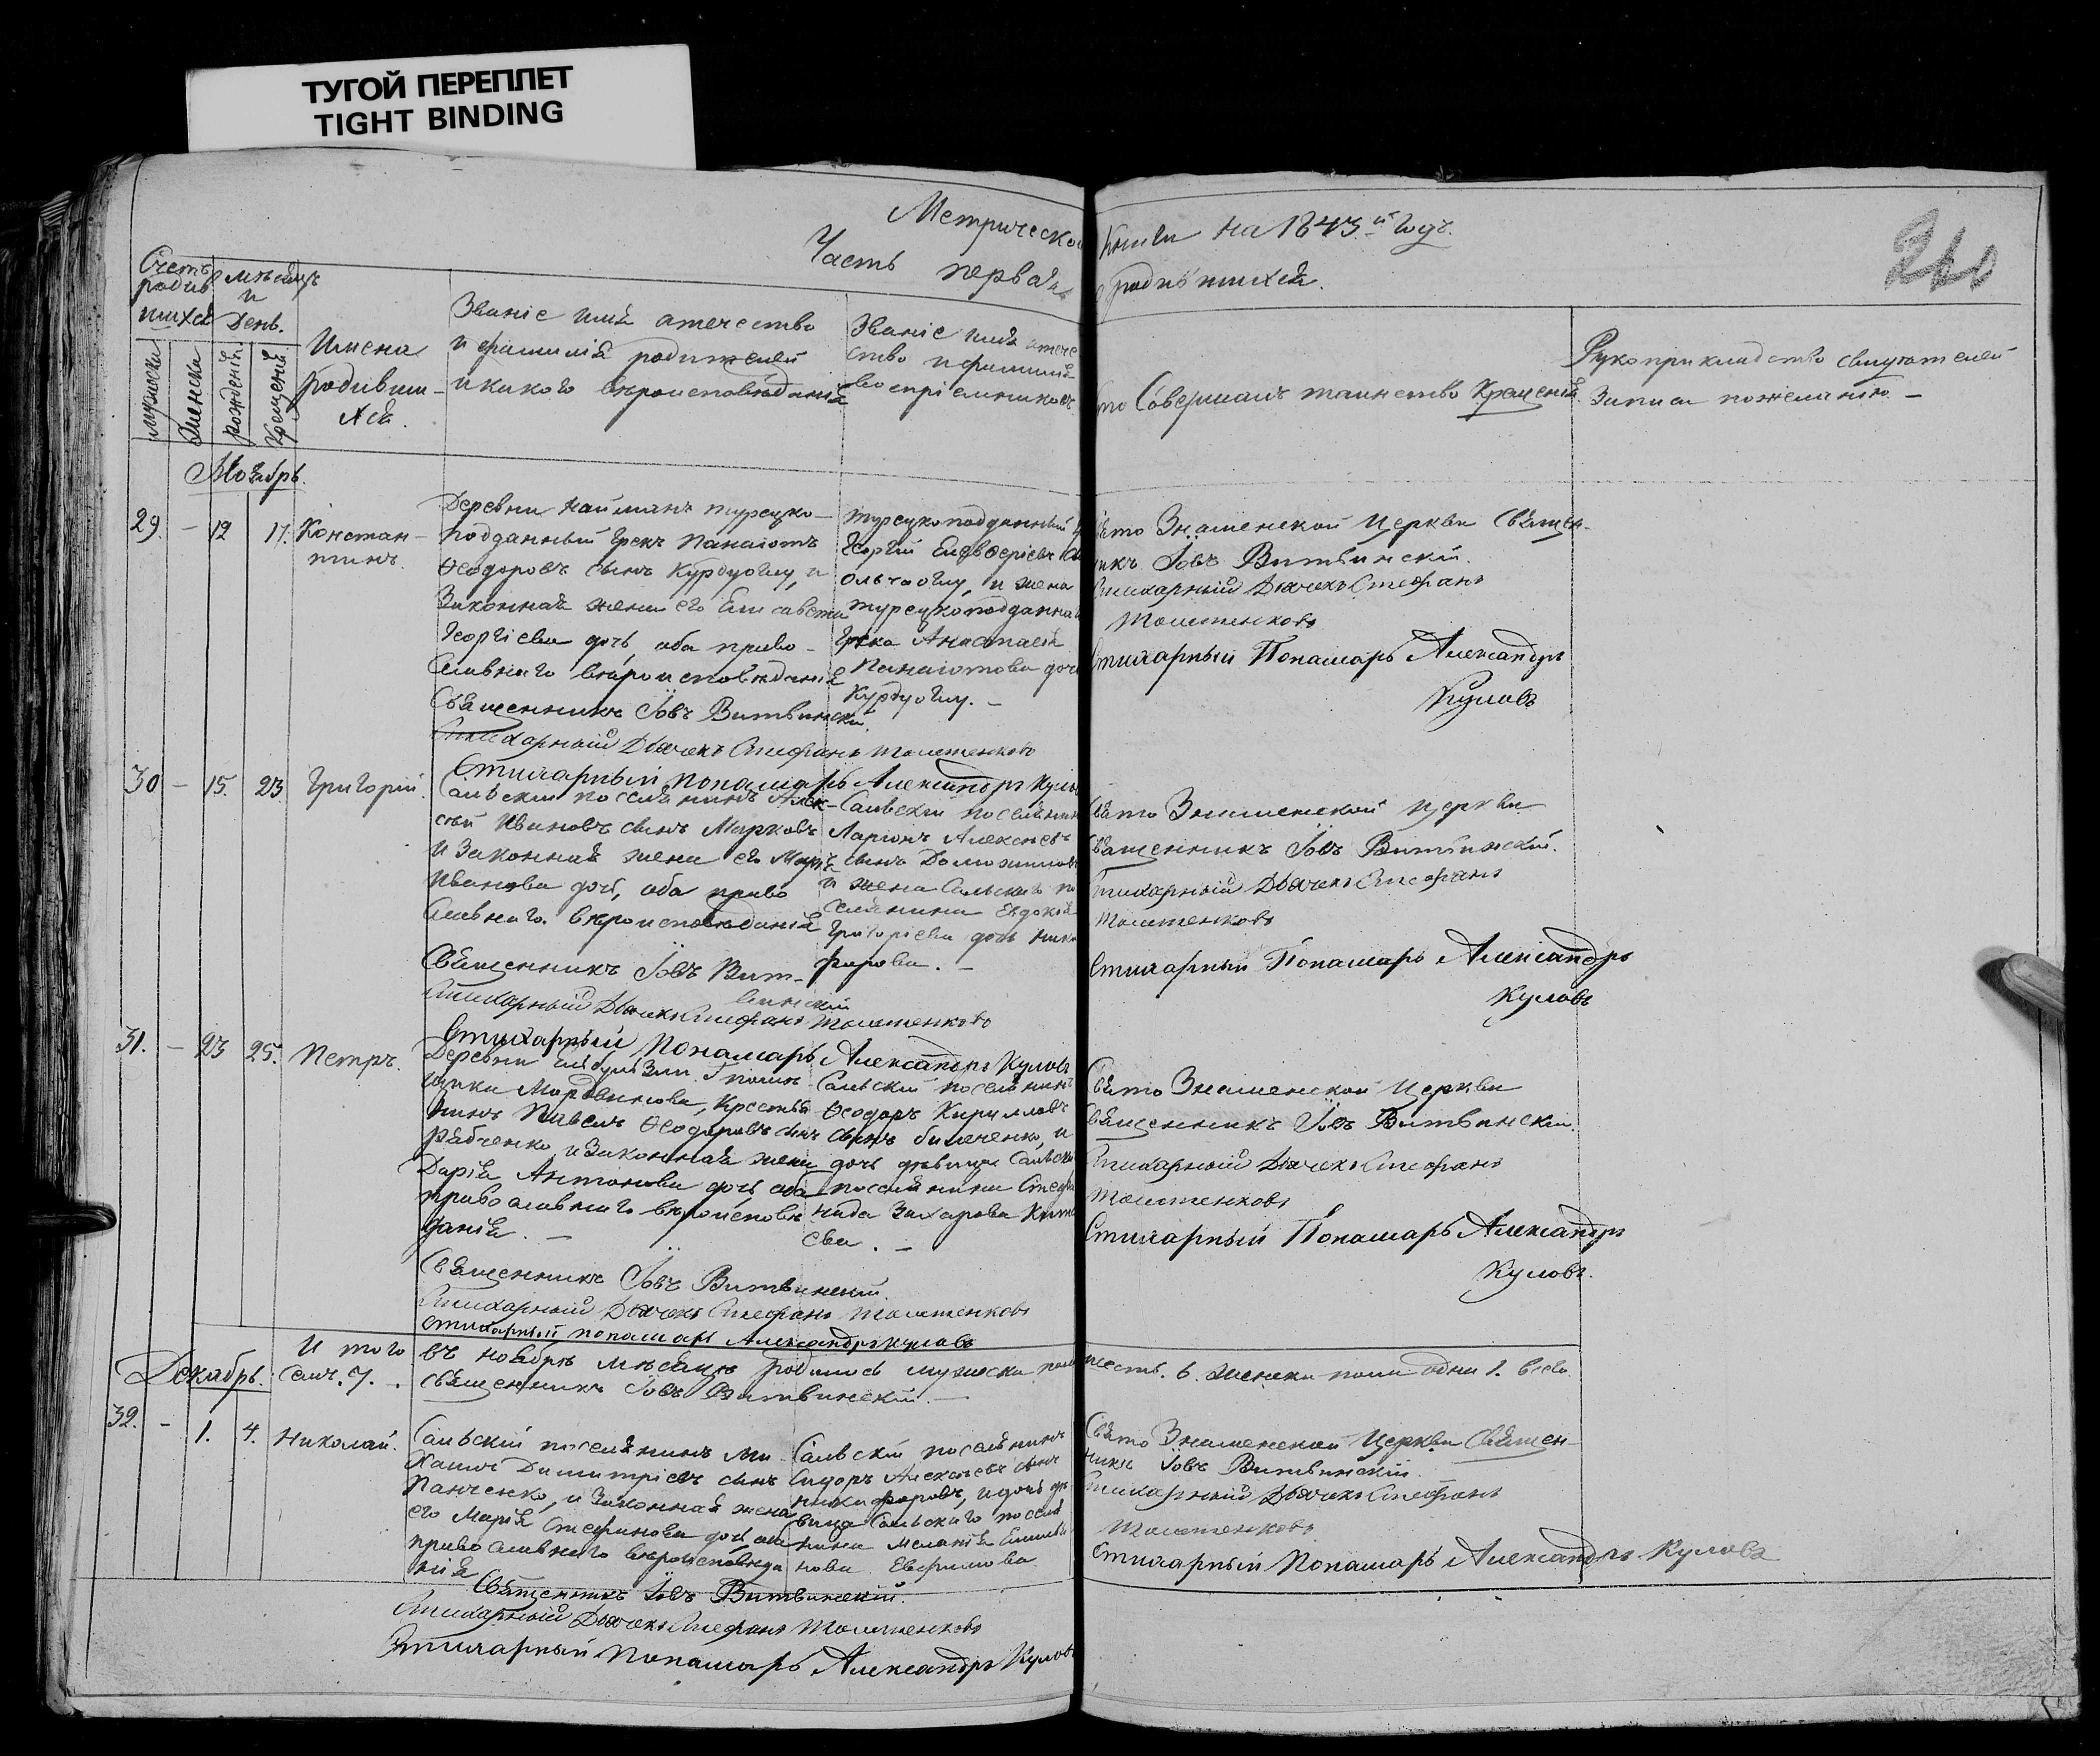 ТУГОЙ ПЕРЕПЛЕТ
TIGHT BINDING
Метрической книги на 1843й Годъ.
Часть первая о родившихся.
240
Счетъ родив
шихся
Мѣсяцъ
и
День.
мужска
Женска
рожденія
Крещенія
Имена
родивши-
хся.
Званіе имя отечество
и фамилія родителей
и какого вѣроисповѣданія
Званіе имя отече
ство и фамилія
воспріемниковъ
Кто Совершалъ таинство Крещенія.
Рукоприкладство свидѣтелей
Записи по желанію. –
Ноябрь.
29. – 12 17. Констан-
тинъ.
Деревни Найманъ турецко-
подданный Грекъ Панаіотъ
Ѳеодоровъ сынъ Курдуоглу, и
Законная жена его Елисавета
Георгіева дочь, оба право-
славнаго вѣроисповѣданія
Священникъ Іовъ Витвинскій.
Стихарный Дьячекъ Стефанъ
Стихарный Понамарь Александръ Куловъ
турецкоподданный
Георгій
и жена
турецкоподданная
Грека Анастасія
Панаіотова дочь
Курдуоглу. –
Свято Знаменской Церкви Священ-
никъ Іовъ Витвинскій.
Стихарный Дьячекъ Стефанъ
Стихарный Понамарь Александръ
Куловъ
30 – 15. 23. Григорій.
поселянинъ Алек-
сѣй Ивановъ сынъ Марковъ
и Законная жена его Марія
Иванова дочь, оба право
славнаго вѣроисповѣданія
Священникъ Іовъ Вит-
винскій
Стихарный Дьячекъ Стефанъ
Стихарный Понамарь Александръ Куловъ
поселянинъ
Ларіонъ Алексѣевъ
сынъ
и жена
селянина Евдокія
Григоріева дочь Ники
форова. –
Свято Знаменской Церкви
Священникъ Іовъ Витвинскій.
Стихарный Дьячекъ Стефанъ
Стихарный Понамарь Александръ
Куловъ
31. – 23 25. Петръ.
Деревни
щика Мордвинова, Крестья
нинъ Павелъ Ѳеодоровъ сынъ
Рябченко, и Законная жена
Дарія Антонова дочь оба
православнаго вѣроисповѣ
данія. –
Священникъ Іовъ Витвинскій.
Стихарный Дьячекъ Стефанъ
Стихарный понамарь Александръ Куловъ
поселянинъ
Ѳеодоръ Кирилловъ
сынъ и
дочь дѣвица
поселянина
Захарова
ева. –
Свято Знаменской Церкви
Священникъ Іовъ Витвинскій.
Стихарный Дьячекъ Стефанъ
Стихарный Понамарь Александръ
Куловъ.
И того въ Ноябрѣ мѣсяцѣ родилось мужеска пола шесть. 6. женска пола одна 1. всего
7. Священникъ Іовъ Витвинскій. –
Декабрь.
32. – 1. 4. Николай.
поселянинъ Ми
хаилъ Димитріевъ сынъ
Панченко, и Законная жена
его Марія Стефанова дочь, оба
православнаго вѣроисповѣда
нія
Священникъ Іовъ Витвинскій.
Стихарный Дьячекъ Стефанъ
Стихарный Понамарь Александръ Куловъ
поселянинъ
Сидоръ Алексѣевъ сынъ
Никифоровъ, и дочь дѣ
вица поселя
нина Меланія
Ефимова
Свято Знаменской Церкви Священ-
никъ Іовъ Витвинскій.
Стихарный Дьячекъ Стефанъ
Стихарный Понамарь Александръ Куловъ